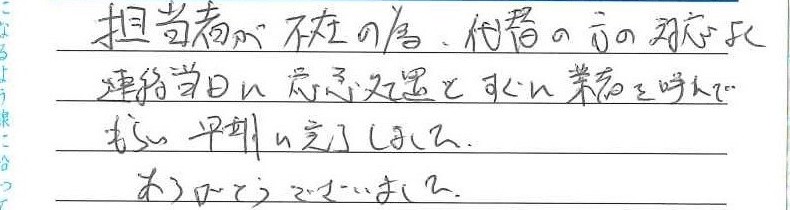 担当者が不在の為、代替の方の対応よく
連絡当日に応急処置とすぐに業者を呼んで
もらい早期に完了しました.
ありがとうございました.
になるよう線に沿って